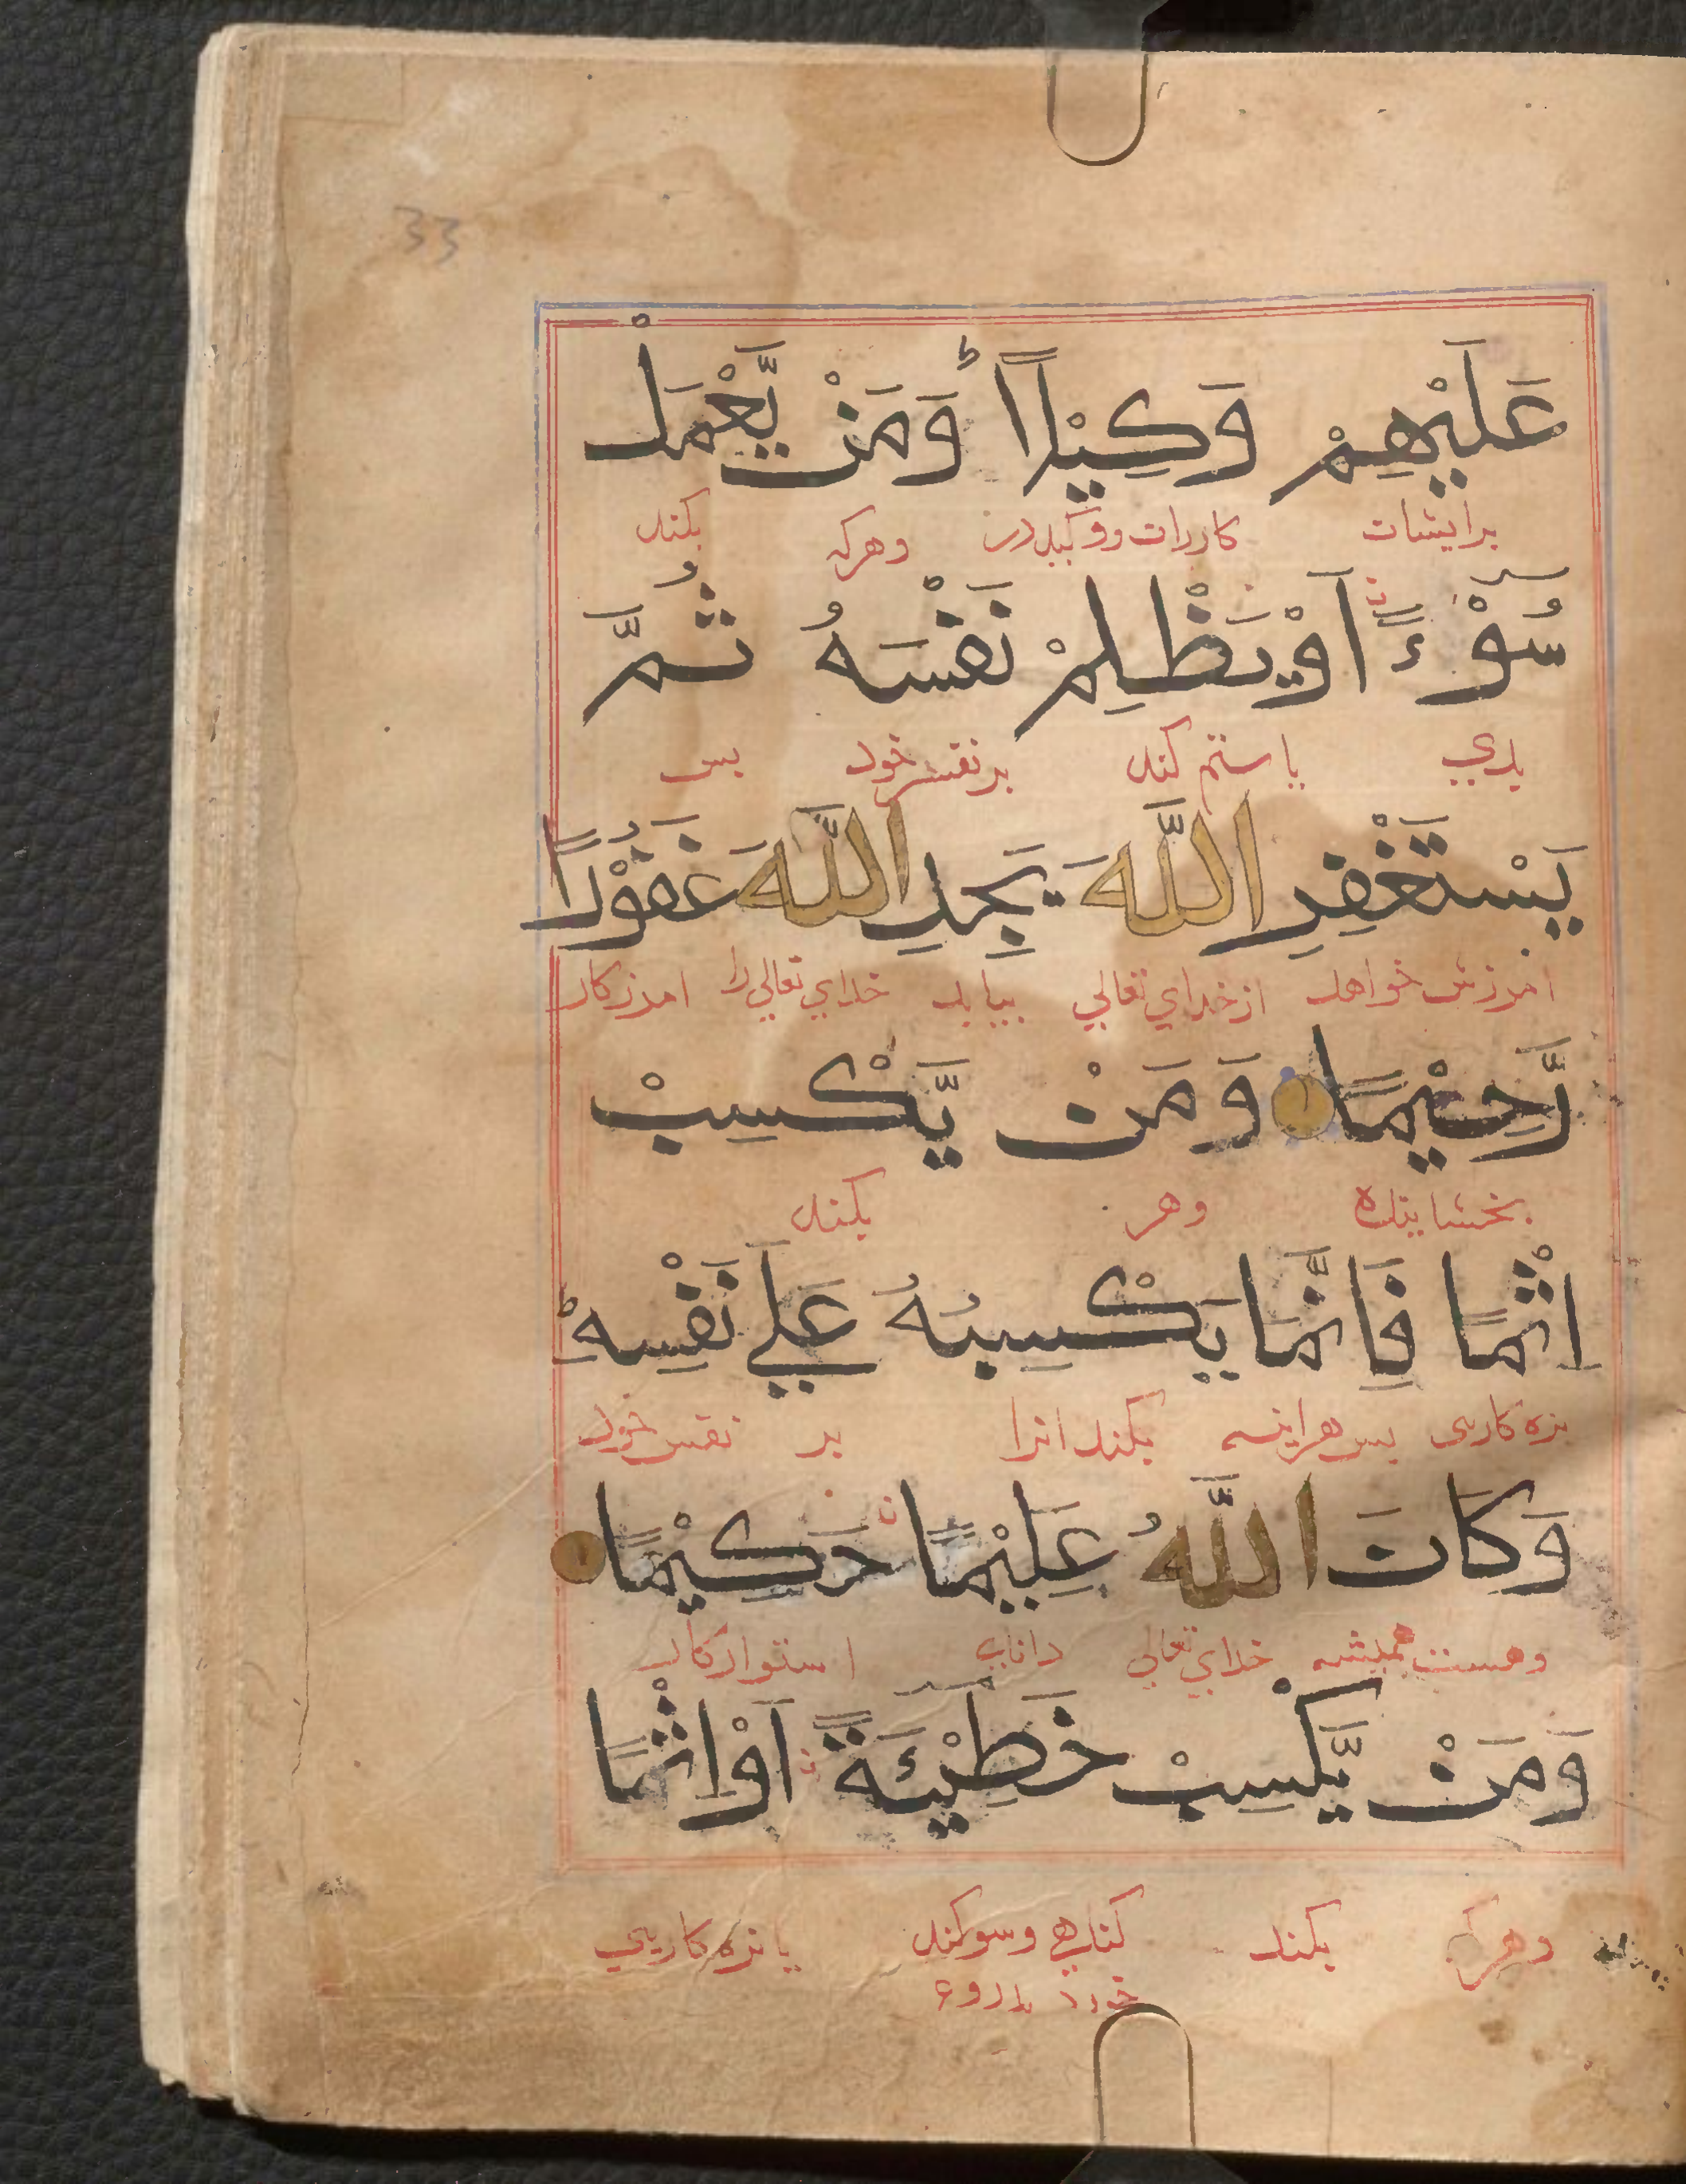 33
عَلَيْهِمْ وَكِيْلًا ؕ وَمَنْ يَّعْمَلْ
برایشان کاردان ووکیل در وهرکه بکند
سُوْٓءًا اَوْ يَظْلِمْ نَفْسَهُ ثُمَّ
بدي یا ستم کند بر نفس خود پس
يَسْتَغْفِرِ اللّٰهَ يَجِدِ اللّٰهَ غَفُوْرًا
امرزش خواهد از خداي تعالي بیابد خداي تعالي را امرزکار
رَّحِيْمًا وَمَنْ يَّكْسِبْ
بخشاینده وهر بکند
اِثْمًا فَاِنَّمَا يَكْسِبُهُ عَلٰي نَفْسِهٖ
بزه کاری پس هراینه بکند انرا بر نفس خود
وَكَانَ اللّٰهُ عَلِيْمًا حَكِيْمًا
وهست همیشه خداي تعالي داناي استوار کار
وَمَنْ يَّكْسِبْ خَطِيْٓـَٔةً اَوْ اِثْمًا
وهرکه بکند کناهي وسوکند یا بزه کاریي
خورد بدروغ